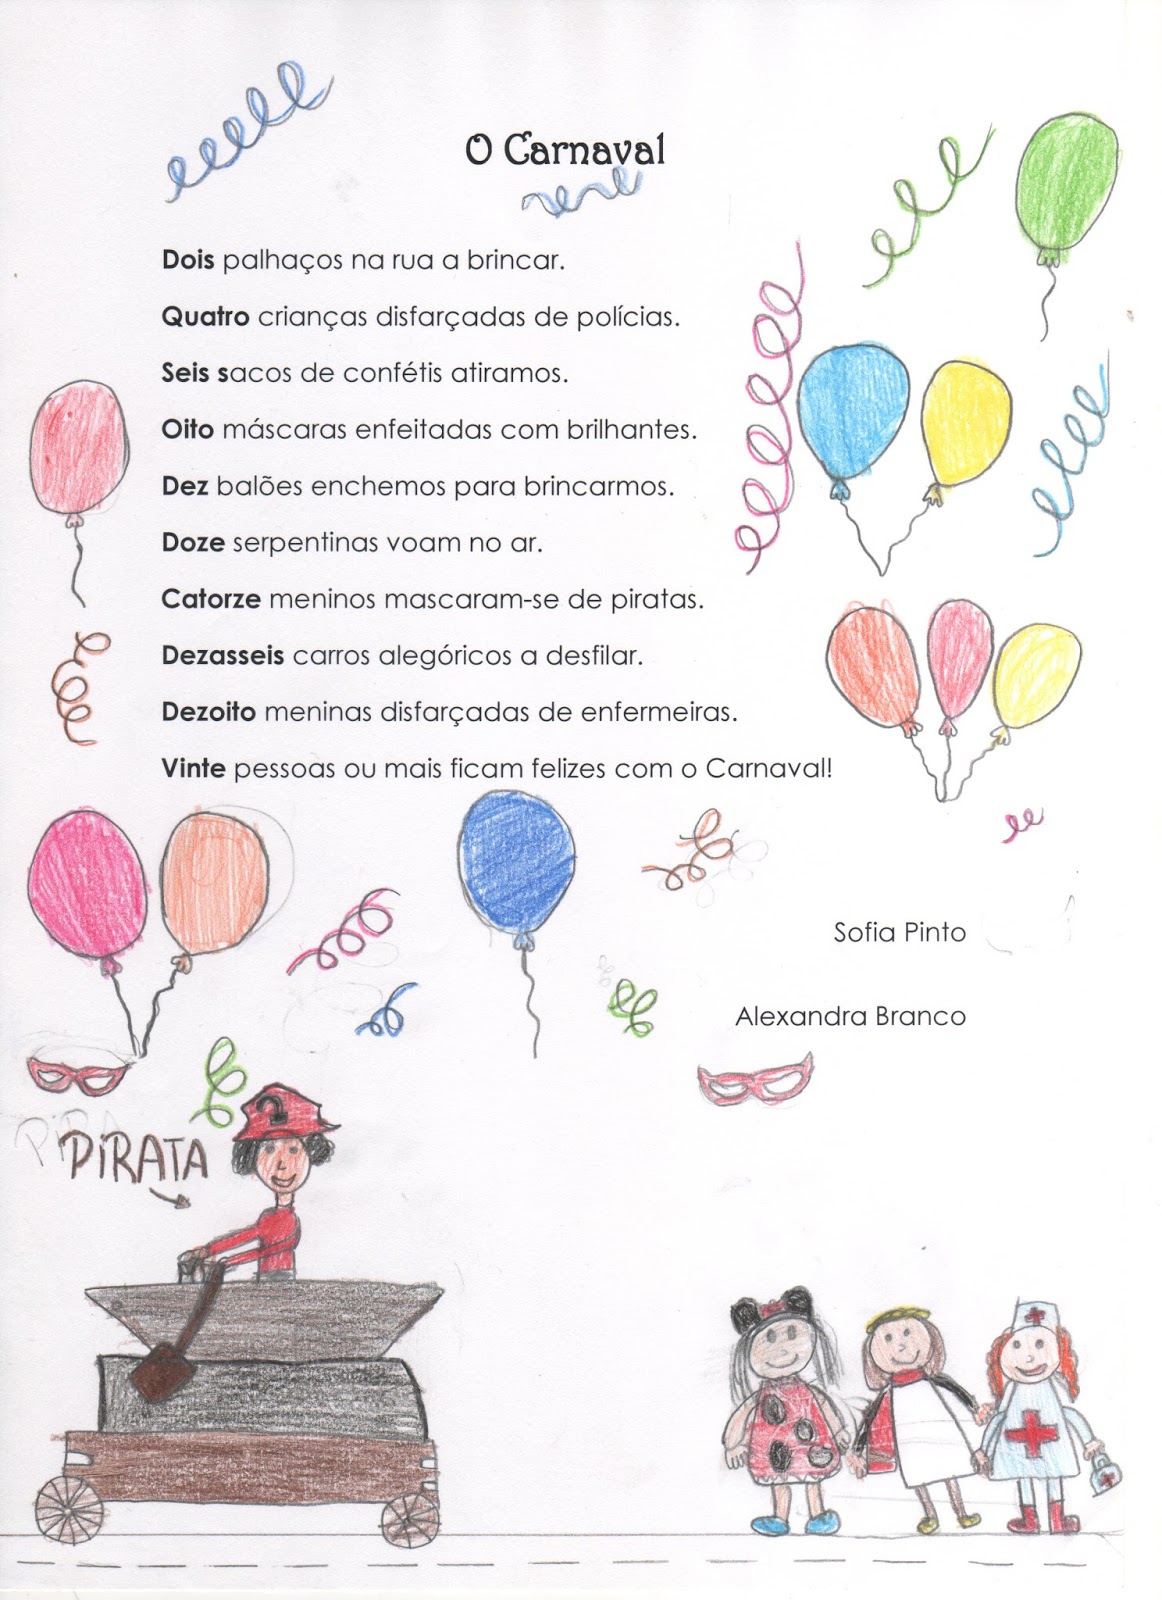 O Carnaval
Dois palhaços na rua a brincar.
Quatro crianças disfarçadas de polícias.
Seis sacos de confétis atiramos.
Oito máscaras enfeitadas com brilhantes.
Dez balões enchemos para brincarmos.
Doze serpentinas voam no ar.
Catorze meninos mascaram-se de piratas.
Dezasseis carros alegóricos a desfilar.
Dezoito meninas disfarçadas de enfermeiras.
Vinte pessoas ou mais ficam felizes com o Carnaval!
Sofia Pinto
Alexandra Branco
PiRATA